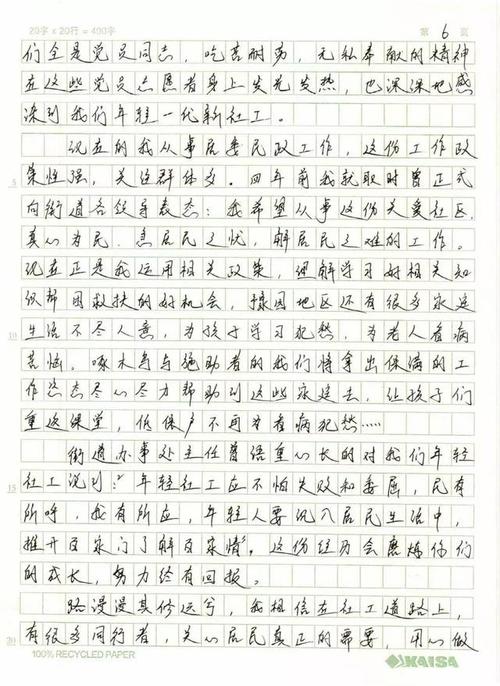 20字 x 20行 = 400字 第 6 页
们全是党员同志，吃苦耐劳，无私奉献的精神
在这些党员志愿者身上发光发热，也深深地感
染到我们年轻一代新社工。
现在的我从事居委民政工作，这份工作政
策性强，关注群体多。四年前我就取时曾正式
向街道各领导表态：我希望从事这份关爱社区，
真心为民，急居民之忧，解居民之难的工作。
现在正是我运用相关政策，理解学习好相关知
识帮困救扶的好机会，地区还有很多家庭
生活不尽人意，为孩子学习犯愁，为老人看病
苦恼。啄木鸟与施助者的我们将拿出保满的工
作姿态尽心尽力帮助到这些家庭去，让孩子们
重返课堂，低保户不再为看病犯愁……
街道办事处主任曾语重心长的对我们年轻
社工说到：“年轻社工应不怕失败和委屈，民有
所呼，我有所应，年轻人要沉入居民生活中，
推开百家门了解百家情”。这份经历会磨炼你们
的成长，努力终有回报。
路漫漫其修远兮，我相信在社工道路上，
有很多同行者，关心居民真正的需要，用心做
5
10
15
20
100% RECYCLED PAPER KAISA